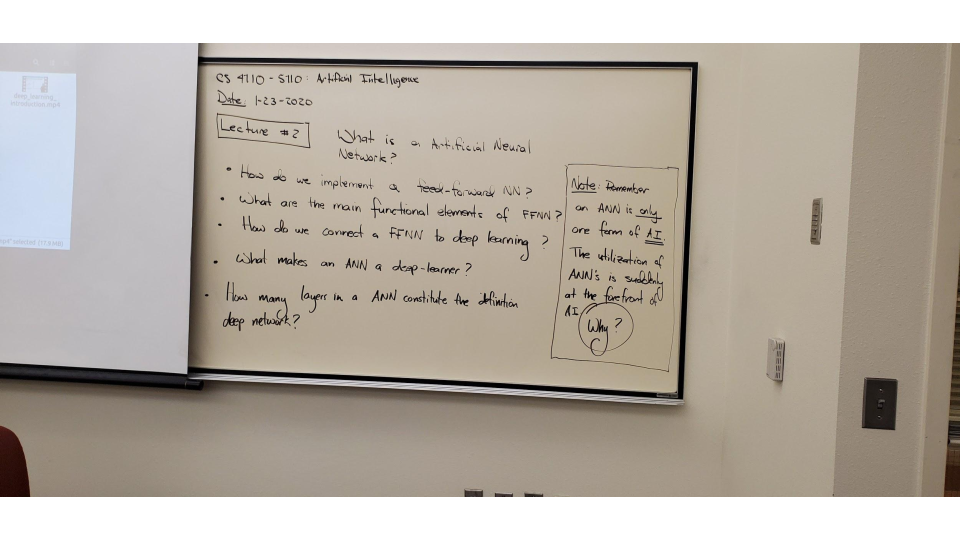 CS 4710 - 5710: Artificial Intelligence
Date: 1-23-2020
Lecture #2
What is a Artificial Neural
Network?
• How do we implement a feed-forward NN?
• What are the main functional elements of FFNN?
• How do we connect a FFNN to deep learning?
• What makes an ANN a deep-learner?
• How many layers in a ANN constitute the definition
deep network?
Note: Remember
an ANN is only
one form of AI.
The utilization of
ANN's is suddenly
at the forefront of
AI
Why?